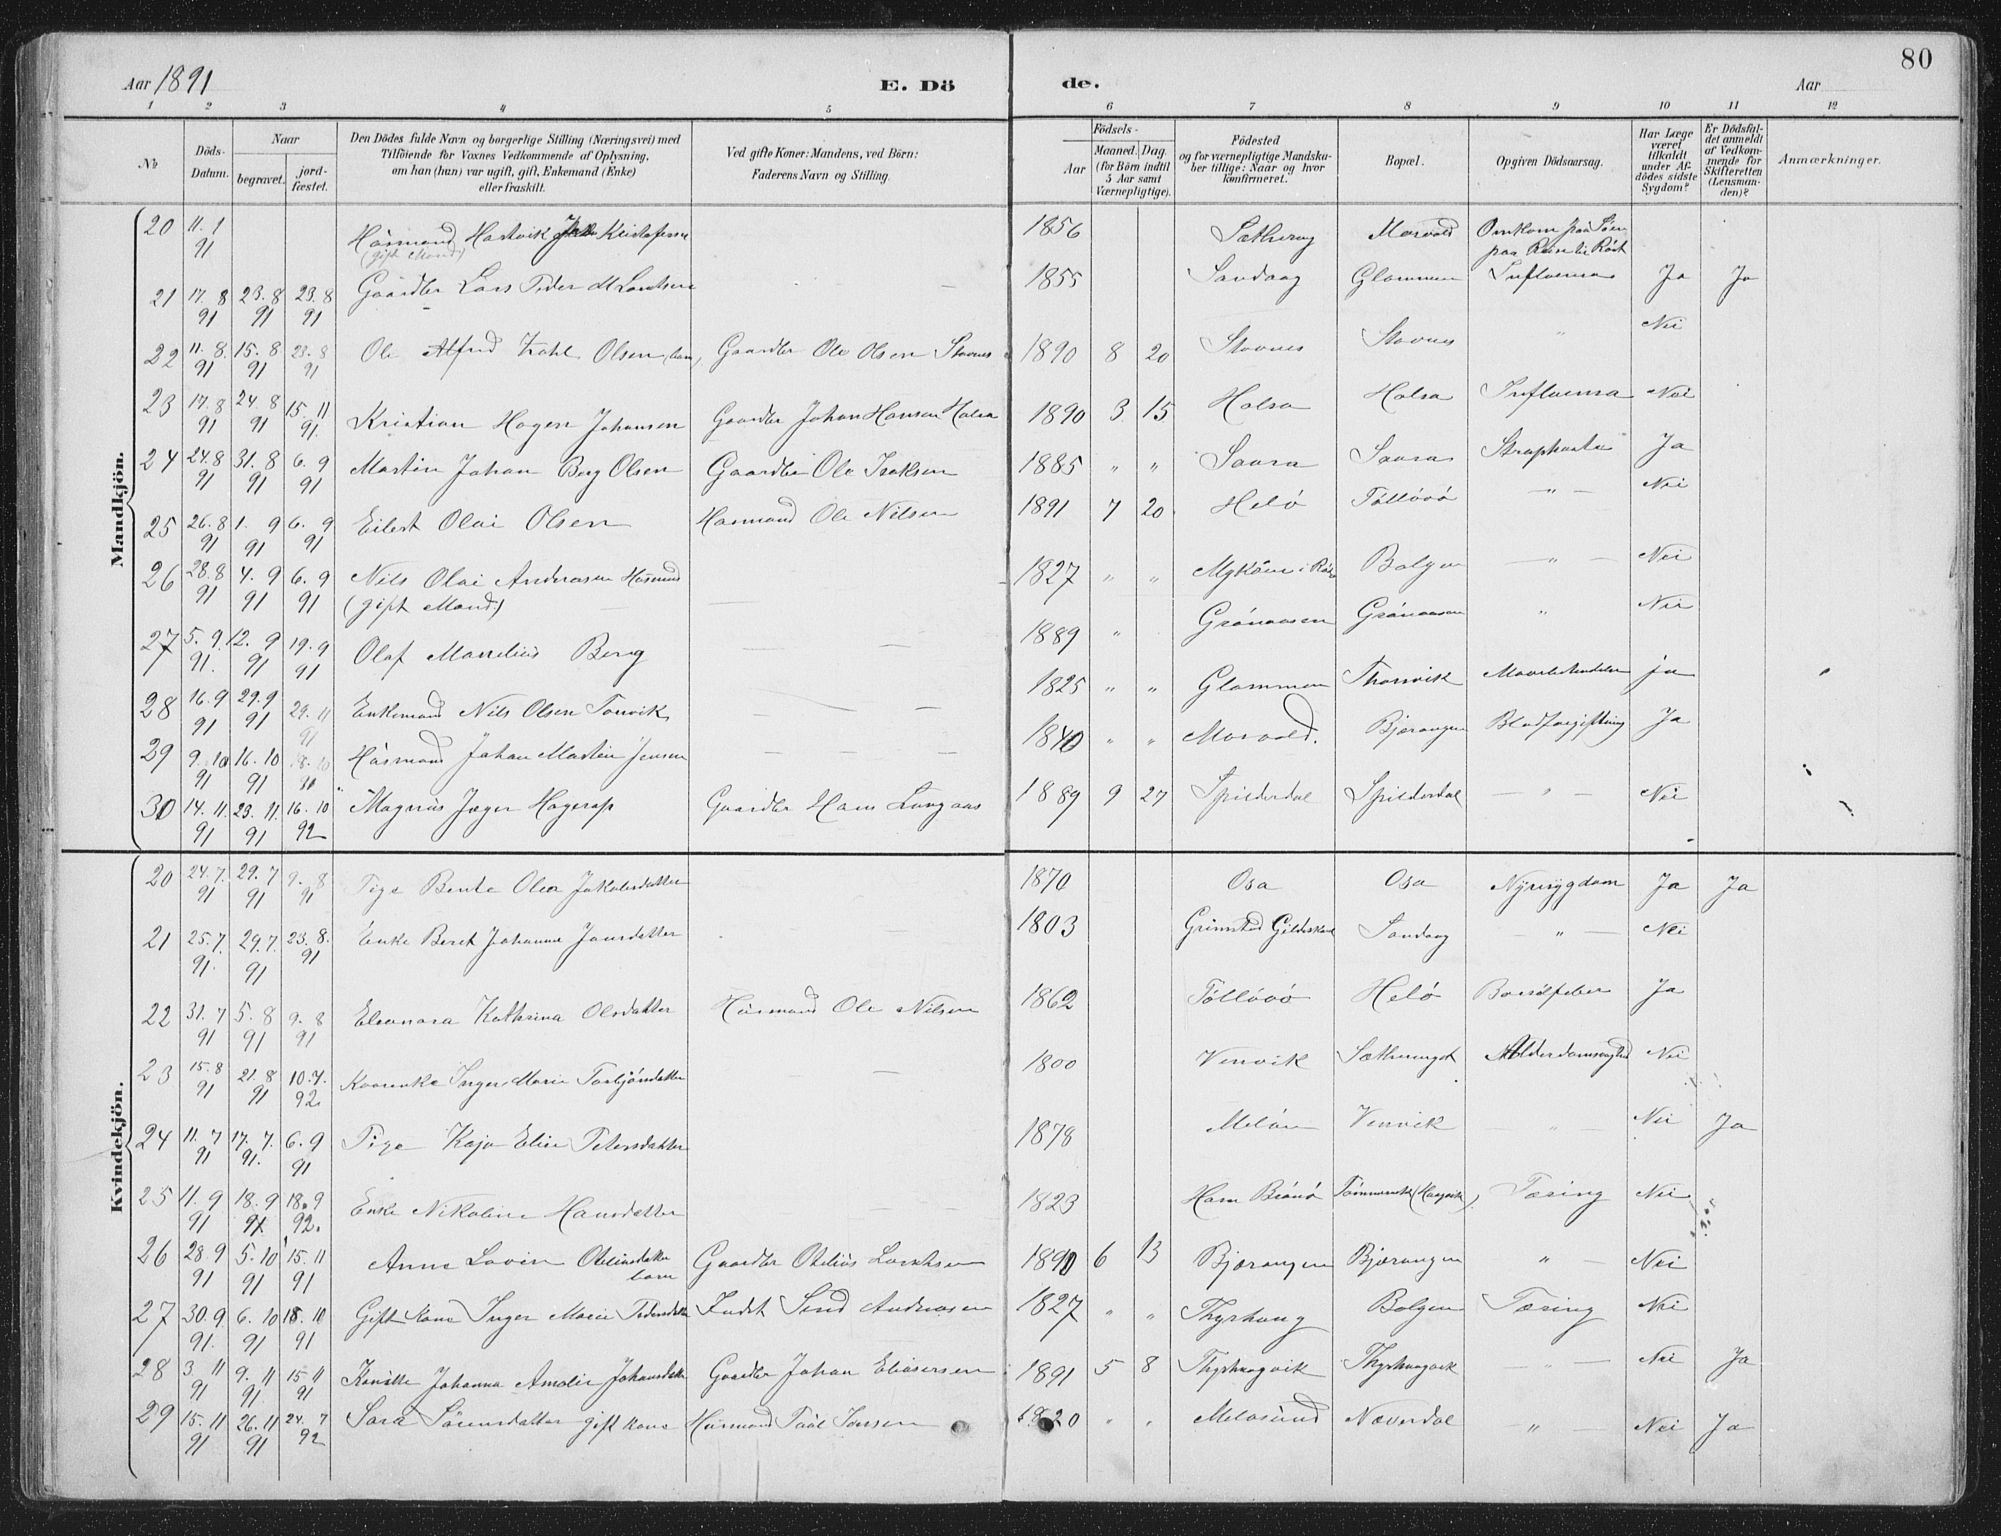 80
Aar 1891 E. Dö de. Aar
1 2 3 4 5 6 7 8 9 10 11 12
No Döds-Datum. Naar begravet. jord-fæstet. Den Dödes fulde Navn og borgerlige Stilling (Næringsvei) med Tilföiende for Voxnes Vedkommende af Oplysning, om han (hun) var ugift, gift, Enkemand (Enke) eller fraskilt. Ved gifte Koner: Mandens, ved Börn: Faderens Navn og Stilling. Aar Födsels- Maaned. Dag. (for Börn indtil 5 Aar samt Værnepligtige). Födested og for værnepligtige Mandska-ber tillige: Naar og hvor konfirmeret. Bopæl. Opgiven Dödsaarsag. Har Læge været tilkaldt under Af-dödes sidste Sygdom? Er Dödsfal-det anmeldt af Vedkom-mende for Skifteretten (Lensman-den)? Anmærkninger.
Mandkjön.
20 11.1 91 Husmand Hartvik Kristofersen (gift Mand) 1856 Morvold Omkom paa Söen paa Reise til Röst
21 17.8 91 23.8 91 23.8 91 Gaardbr Lars Peder 1855 Sandaag Glommen Influensa Ja Ja
22 11.8 91 15.8 91 23.8 91 Ole Alfred Olsen (barn) Gaardbr Ole Olsen Stovnes 1890 8 20 Stovnes Stovnes " Nei
23 17.8 91 24.8 91 15.11 91. Kristian Hagen Johansen Gaardbr Johan Hansen Halsa 1890 3 15 Halsa Halsa Influensa Nei
24 24.8 91 31.8 91 6.9 91 Martin Johan Berg Olsen Gaardbr Ole Isaksen 1885 " " Saura Saura Ja
25 26.8 91 1.9 91 6.9 91 Eilert Olai Olsen Husmand Ole Nilsen 1891 7 20 Helö Töllövö " Nei
26 28.8 91 4.9 91 6.9 91 Nils Olai Andreasen Husmand (gift Mand) 1827 " " i Bolgen " Nei
27 5.9 91. 12.9 91 19.9 91 Olaf Berg 1889 " Grönaasen Grönaasen " Nei
28 16.9 91 29.9 91 29.11 91 Enkemand Nils Olsen Torsvik 1825 " " Glommen Thorsvik ja
29 9.10 91 16.10 91 18.10 Husmand Johan Martin Jensen 1840 " " Morvold. Bjærangen Blodforgiftning Ja
30 14.11. 91 23.11. 91 16.10 92 Magnus Jæger Hagerup Gaardbr Hans Langaas 1889 9 27 Spilderdal Spilderdal " Nei
Kvindekjön.
20 24.7. 91 29.7 91 9.8 91 Pige Bente Olea Jakobsdatter 1870 Osa Osa Nyresygdom Ja Ja
21 25.7. 91. 29.7. 91 23.8. 91 Enke Beret Johanna Jonsdatter 1803 Grimsted Gildeskaal Sandaag " Nei
22 31.7 91 5.8 91 9.8 91 Eleonora Kathrina Olsdatter Husmand Ole Nilsen 1862 Töllövö Helö Barselfeber Ja
23 15.8 91 21.8 91 10.7. 92. Inger Marie Torbjörnsdatter 1800 Venvik Alderdomssvaghed Nei
24 11.7 91 17.7. 91. 6.9 91 Pige Kaja Elise Petersdatter 1878 Melöen Venvik " Nei Ja
25 11.9 91 18.9 91 18.9 92. Enke Nikoline Hansdatter 1823 Tæring Nei
26 28.9 91 5.10 91 15.11 91 Anne Lovise Otelinsdatter barn Gaardbr Otelius Lorntsen 1890 6 13 Bjærangen Bjærangen " Nei
27 30.9 91. 6.10 91 18.10 91 Gift Kone Inger Marie Pedersdatter Andreasen 1827 " " Bolgen Tæring Nei
28 3.11 91 9.11 91. 15.11 91 Johanna Amalie Johansdatter Gaardbr Johan Eliasersen 1891 5 8 " Nei Ja
29 15.11 91 26.11 91 24.7 92 Sara Sörensdatter gift Kone Husmand Paal Jonsen 1820 " " Melösund Næverdal " Nei Ja